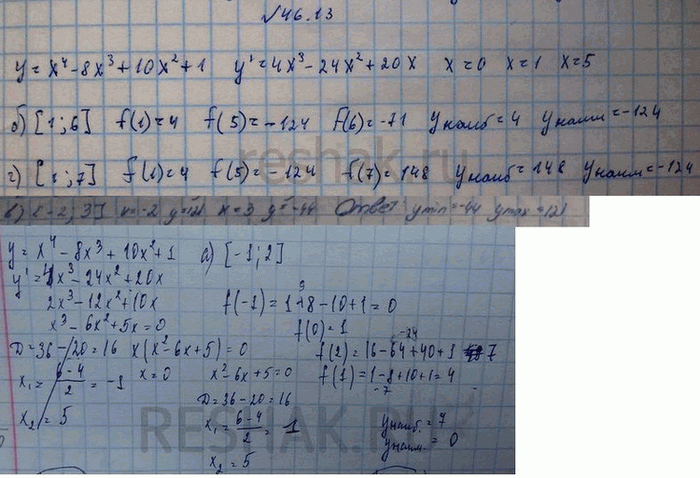 №46.13
y=x⁴-8x³+10x²+1 y'=4x³-24x²+20x x=0 x=1 x=5
б) [1;6] f(1)=4 f(5)=-124 f(6)=-71 yнаиб=4 yнаим=-124
г) [1;7] f(1)=4 f(5)=-124 f(7)=148 yнаиб=148 yнаим=-124
в) [-2;3] x=-2 y=121 x=3 y=-44 Ответ ymin=-44 ymax=121
y=x⁴-8x³+10x²+1 а) [-1;2]
y'=4x³-24x²+20x
2x³-12x²+10x
f(-1)=1+8-10+1=0
x³-6x²+5x=0
f(0)=1
D=36-20=16 x(x²-6x+5)=0
f(2)=16-64+40+1 7
-24
x₁=6-4/2=-1 x=0 x²-6x+5=0
f(1)=1-8+10+1=4
-7
x₂=5
D=36-20=16
x₁=6-4/2=1
yнаиб.=7
yнаим.=0
x₂=5
reshak.ru
RESHAK.RU